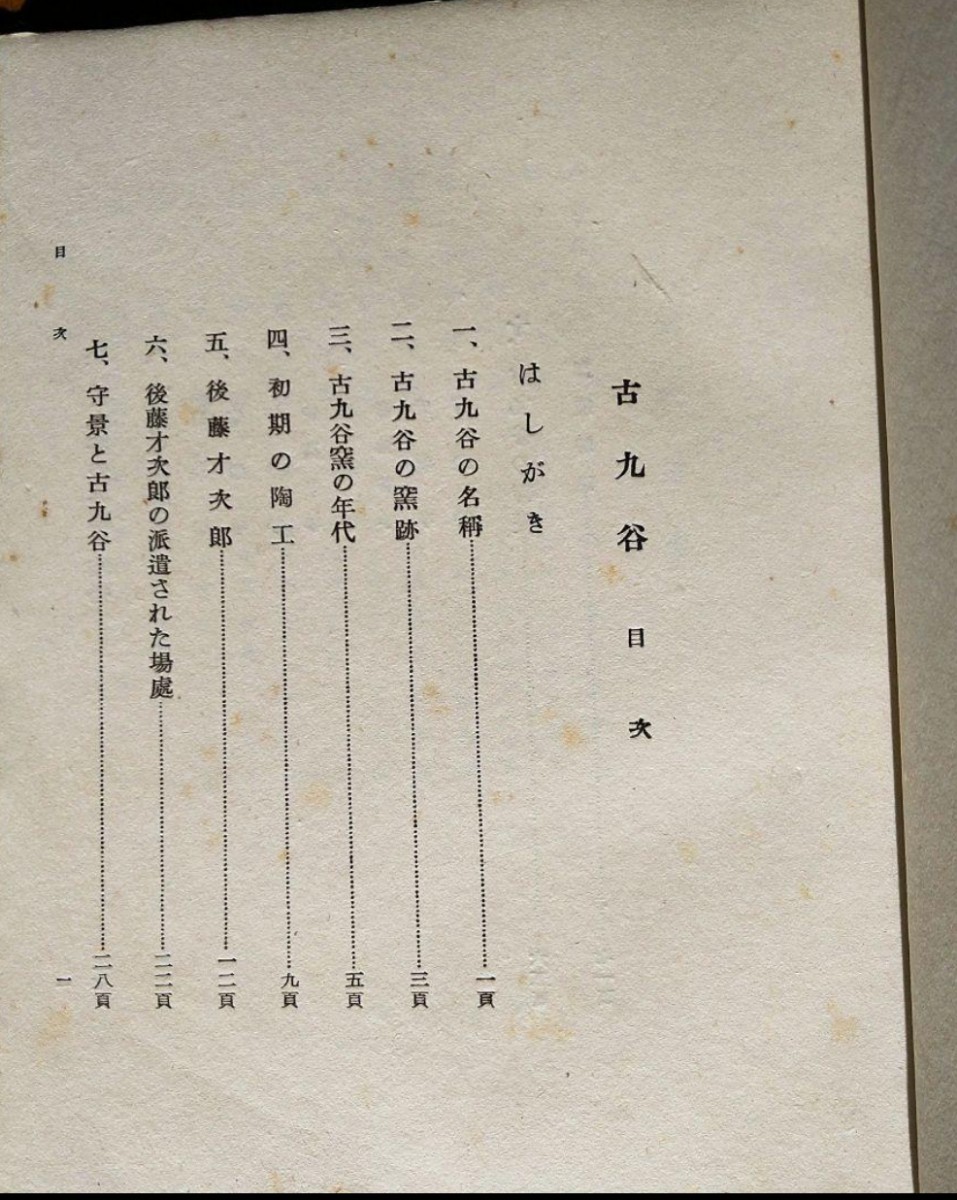 古九谷 目次
はしがき
一、古九谷の名稱……一頁
二、古九谷の窯跡……三頁
三、古九谷窯の年代……五頁
四、初期の陶工……九頁
五、後藤才次郎……一二頁
六、後藤才次郎の派遣された場處……二二頁
七、守景と古九谷……二八頁
目次
一